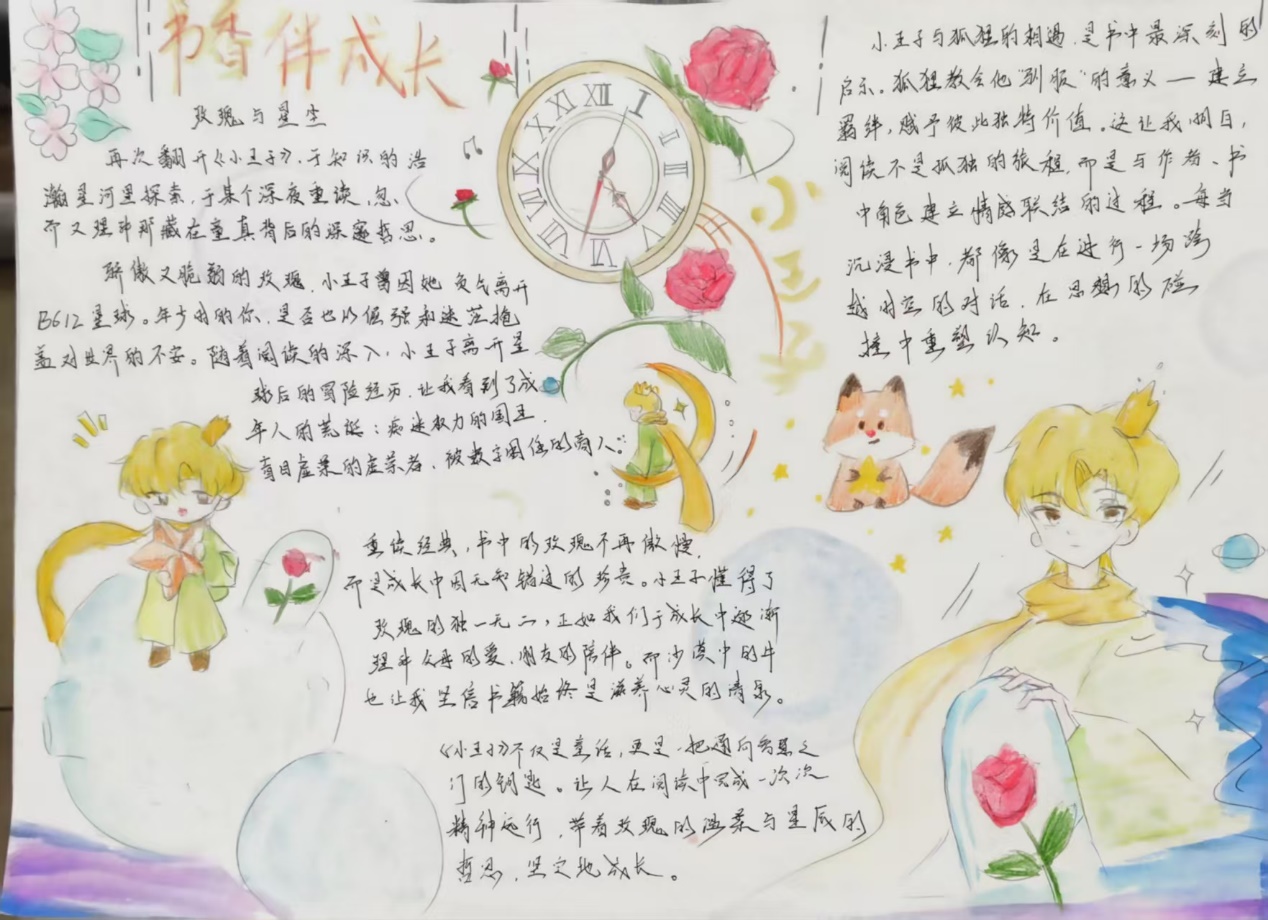 书香伴成长
玫瑰与星尘
再次翻开《小王子》,于知识的浩
瀚星河里探索,于某个深夜重读,忽
而又理解那藏在童真背后的深邃哲思。
骄傲又脆弱的玫瑰,小王子曾因她负气离开
B612星球。年少时的你,是否也以倔强和迷茫掩
盖对世界的不安。随着阅读的深入,小王子离开星
球后的冒险经历,让我看到了成
年人的荒诞:痴迷权力的国王,
盲目虚荣的虚荣者,被数字困住的商人……
重读经典,书中的玫瑰不再傲慢,
而是成长中因无知错过的珍贵。小王子懂得了
玫瑰的独一无二,正如我们于成长中逐渐
理解父母的爱,朋友的陪伴。而沙漠中的井
也让我坚信书籍始终是滋养心灵的清泉。
《小王子》不仅是童话,更是一把通向哲思之
门的钥匙。让人在阅读中完成一次次
精神远行,带着玫瑰的温柔与星辰的
哲思,坚定地成长。
XII I II III IIII V VI VII VIII IX X XI
小王子
小王子与狐狸的相遇,是书中最深刻的
启示。狐狸教会他"驯服"的意义——建立
羁绊,赋予彼此独特价值。这让我明白,
阅读不是孤独的旅程,而是与作者、书
中角色建立情感联结的过程。每当
沉浸书中,都像是在进行一场跨
越时空的对话,在思想的碰
撞中重塑认知。